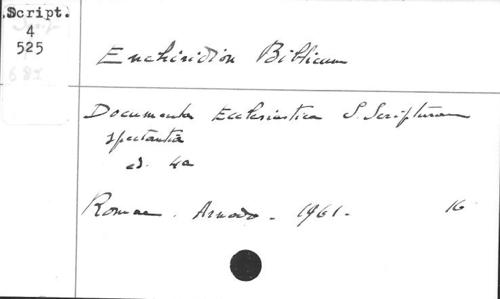 Script.
4
525
Enchiridion Biblicum
Documenta Ecclesiastica S. Scripturam
spectantia
ed. 4a
Romae. Arnodo - 1961. 16